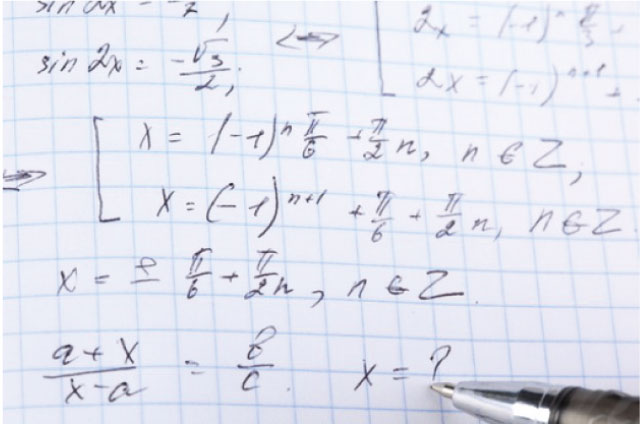 sin 2x = -√3/2;
<=> [ 2x = (-1)ⁿ π/3
2x = (-1)ⁿ⁺¹
=> [ x = (-1)ⁿ π/6 + π/2 n, n ∈ Z;
x = (-1)ⁿ⁺¹ + π/6 + π/2 n, n ∈ Z
x = ± π/6 + π/2 n, n ∈ Z.
(a + x)/(x - a) = b/c. x = ?